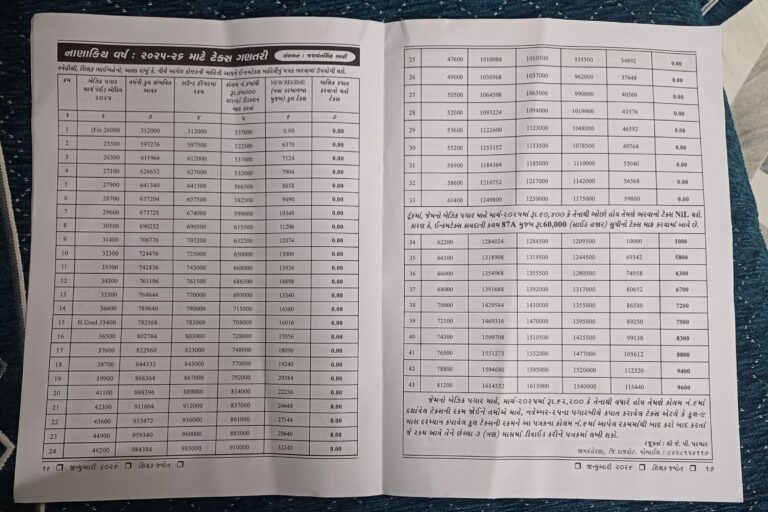 નાણાકિય વર્ષ : ૨૦૨૫-૨૬ માટે ટેક્સ ગણતરી
સંકલન : જશવંતસિંહ ભાટી
સ્નેહીશ્રી, શિક્ષક ભાઈબહેનો, આશા રાખું કે, નીચે આપેલ કોષ્ટકની માહિતી આપને ઈન્કમટેક્સ માહિતીનું પત્રક ભરવામાં ઉપયોગી થશે.
ક્રમ બેઝિક પગાર માર્ચ પેઈડ એપ્રિલ ૨૦૨૫ વર્ષની કુલ સંભવિત આવક રાઉન્ડ ફીગરમાં રકમ કોલમ નં.૪માંથી રૂા.૭૫૦૦૦ સ્ટાન્ડર્ડ ડીડક્શન બાદ કરતાં NEW REGIME (નવા કરમાળખા મુજબ) કુલ ટેક્સ માસિક કપાત કરવાનો થતો ટેક્સ
૧ ૨ ૩ ૪ ૫ ૬ ૭
1 (Fix 26000 312000 312000 237000 0.00 0.00
2 25500 597276 597500 522500 6370 0.00
3 26300 611964 612000 537000 7124 0.00
4 27100 626652 627000 552000 7904 0.00
5 27900 641340 641500 566500 8658 0.00
6 28700 657204 657500 582500 9490 0.00
7 29600 673728 674000 599000 10348 0.00
8 30500 690252 690500 615500 11206 0.00
9 31400 706776 707200 632200 12074 0.00
10 32300 724476 725000 650000 13000 0.00
11 33300 742836 743000 668000 13936 0.00
12 34300 761196 761500 686500 14898 0.00
13 35300 769644 770000 695000 15340 0.00
14 36400 789840 790000 715000 16380 0.00
15 H.Grad 35400 782568 783000 708000 16016 0.00
16 36500 802764 803000 728000 17056 0.00
17 37600 822960 823000 748000 18096 0.00
18 38700 844332 845000 770000 19240 0.00
19 39900 866364 867000 792000 20384 0.00
20 41100 888396 889000 814000 22256 0.00
21 42300 911604 912000 837000 24648 0.00
22 43600 935472 936000 861000 27144 0.00
23 44900 959340 960000 885000 29640 0.00
24 46200 984384 985000 910000 32240 0.00
૧૬ જાન્યુઆરી ૨૦૨૬ શિક્ષક જ્યોત
25 47600 1010088 1010500 935500 34892 0.00
26 49000 1036968 1037000 962000 37648 0.00
27 50500 1064508 1065000 990000 40560 0.00
28 52000 1093224 1094000 1019000 43576 0.00
29 53600 1122600 1123000 1048000 46592 0.00
30 55200 1153152 1153500 1078500 49764 0.00
31 56900 1184364 1185000 1110000 53040 0.00
32 58600 1216752 1217000 1142000 56368 0.00
33 60400 1249800 1250000 1175000 59800 0.00
ટૂંકમાં, જેમનો બેઝિક પગાર માહે માર્ચ-૨૦૨૫માં રૂા.૬૦,૪૦૦ કે તેનાથી ઓછો હોય તેમણે ભરવાનો ટેક્સ NiL થશે.
કારણ કે, ઈન્કમટેક્સ કાયદાની કલમ 87A મુજબ રૂા.60,000 (સાઈઠ હજાર) સુધીનો ટેક્સ માફ કરવામાં આવે છે.
34 62200 1284024 1284500 1209500 10000 1000
35 64100 1318908 1319500 1244500 69342 5800
36 66000 1354968 1355500 1280500 74958 6300
37 68000 1391688 1392000 1317000 80652 6700
38 70000 1429584 1430000 1355000 86580 7200
39 72100 1469316 1470000 1395000 89250 7500
40 74300 1509708 1510500 1435500 99138 8300
41 76500 1551273 1552000 1477000 105612 8800
42 78800 1594680 1595000 1520000 112320 9400
43 81200 1614552 1615000 1540000 115440 9600
જેમનો બેઝિક પગાર માહે, માર્ચ-૨૦૨૫માં રૂા.૬૨,૨૦૦ કે તેનાથી વધારે હોય તેમણે કોલમ નં.૬માં
દર્શાવેલ ટેક્સની રકમ જોઈને તમોએ માહે, નવેમ્બર-૨૫ના પગારબીલે કપાત કરાવેલ ટેક્સ એટલે કે કુલ-૯
માસ દરમ્યાન કપાવેલ કુલ ટેક્સની રકમને આ પત્રકના કોલમ નં.૬માં આપેલ રકમમાંથી બાદ કરો બાદ કરતાં
જે રકમ આવે તેને છેલ્લા ૩ (ત્રણ) માસમાં ડીવાઈડ કરીને પત્રકમાં લખી શકો.
રજૂકર્તા : શ્રી જે. પી. પરમાર
જામકંડોરણા, જિ.રાજકોટ.
જાન્યુઆરી ૨૦૨૬ શિક્ષક જ્યોત ૧૭